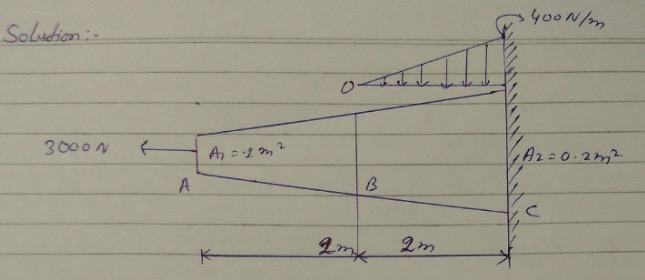 Solution:-
400N/m
O
3000N
A1 = .1m²
A2 = 0.2m²
A
B
C
2m
2m